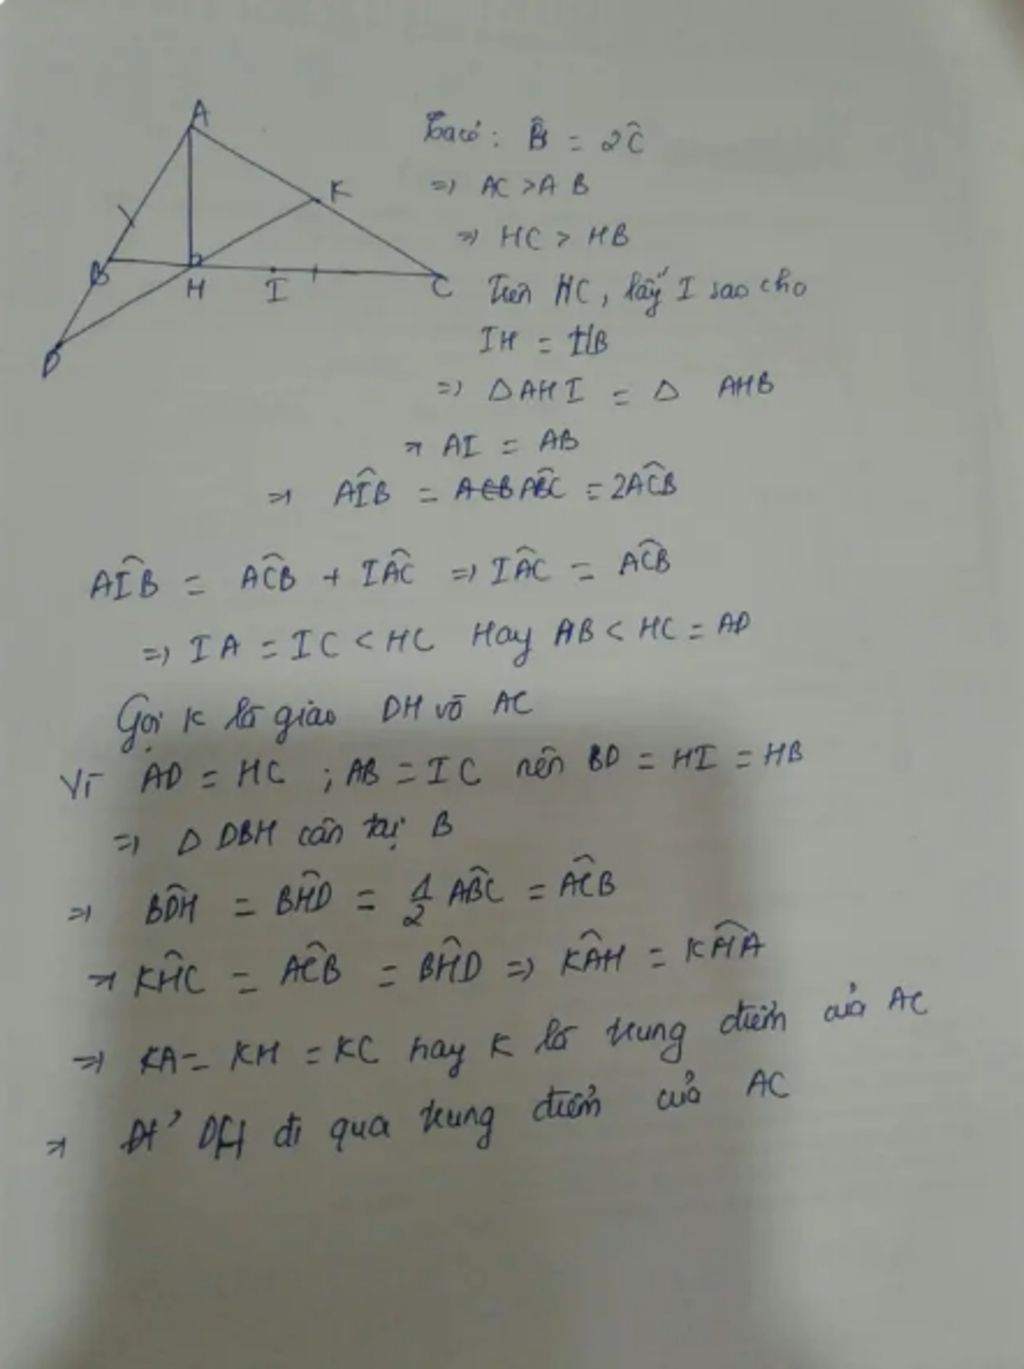 A
K
B
H
I
C
D
Ta có: B̂ = 2Ĉ
=> AC > AB
=> HC > HB
Trên HC, lấy I sao cho
IH = HB
=> Δ AHI = Δ AHB
=> AI = AB
=> AÎB = AB̂C = 2AĈB
AÎB = AĈB + IÂC => IÂC = AĈB
=> IA = IC < HC Hay AB < HC = AD
Gọi K là giao DH võ AC
Vì AD = HC ; AB = IC nên BD = HI = HB
=> Δ DBH cân tại B
=> BD̂H = BĤD = 1/2 AB̂C = AĈB
=> KĤC = AĈB = BĤD => KÂH = KĤA
=> KA = KH = KC hay K là trung điểm của AC
=> Đt' DH đi qua trung điểm của AC